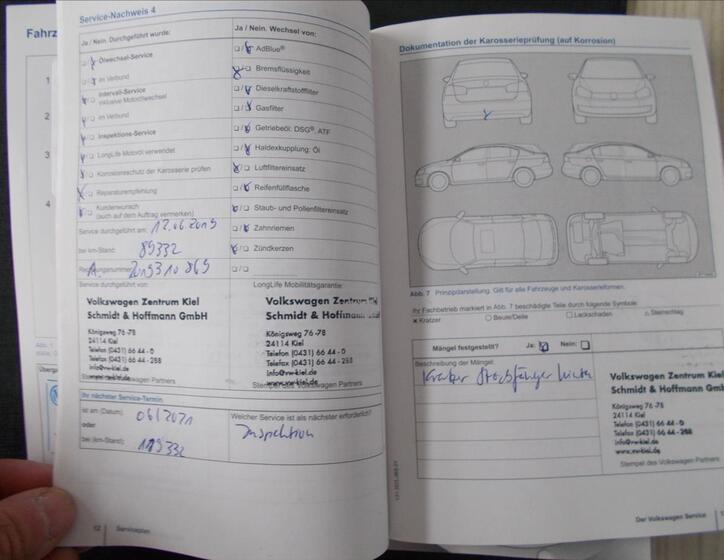 Fahrz
1
2
3
4
Service-Nachweis 4
Ja / Nein. Durchgeführt wurde:
Ölwechsel-Service
im Verbund
Intervall-Service
inklusive Motorölwechsel
im Verbund
Inspektions-Service
LongLife Motoröl verwendet
Korrosionsschutz der Karosserie prüfen
Reparaturempfehlung
Kundenwunsch
(auch auf dem Auftrag vermerken)
Service durchgeführt am: 12.06.2019
bei km-Stand: 89332
Service durchgeführt von:
Volkswagen Zentrum Kiel
Schmidt & Hoffmann GmbH
Königsweg 76-78
24114 Kiel
Telefon (0431) 66 44-0
Telefax (0431) 66 44-288
info@vw-kiel.de
Ja / Nein. Wechsel von:
AdBlue®
Bremsflüssigkeit
Dieselkraftstofffilter
Gasfilter
Getriebeöl: DSG®, ATF
Haldexkupplung: Öl
Luftfiltereinsatz
Reifenfüllflasche
Staub- und Pollenfiltereinsatz
Zahnriemen
Zündkerzen
LongLife Mobilitätsgarantie:
Volkswagen Zentrum Kiel
Schmidt & Hoffmann
Königsweg 76-78
24114 Kiel
Telefon (0431) 66 44-0
Telefax (0431) 66 44-288
info@vw-kiel.de
www.vw-kiel.de
Stempel des Volkswagen Partners
Ihr nächster Service-Termin
ist am (Datum): 06/2021
oder
bei (km-Stand): 119332
Welcher Service ist als nächster erforderlich?
Inspektion
12 Serviceplan
Dokumentation der Karosserieprüfung (auf Korrosion)
Abb. 7 Prinzipdarstellung: Gilt für alle Fahrzeuge und Karosserieformen.
Ihr Fachbetrieb markiert in Abb. 7 beschädigte Teile durch folgende Symbole:
× Kratzer
○ Beule/Delle
□ Lackschaden
△ Steinschlag
Mängel festgestellt? Ja: Nein:
Beschreibung der Mängel:
Kratzer Stoßfänger hinten
Volkswagen Zentrum Kiel
Schmidt & Hoffmann GmbH
Königsweg 76-78
24114 Kiel
Telefon (0431) 66 44-0
Telefax (0431) 66 44-288
info@vw-kiel.de
www.vw-kiel.de
Stempel des Volkswagen Partners
Der Volkswagen Service